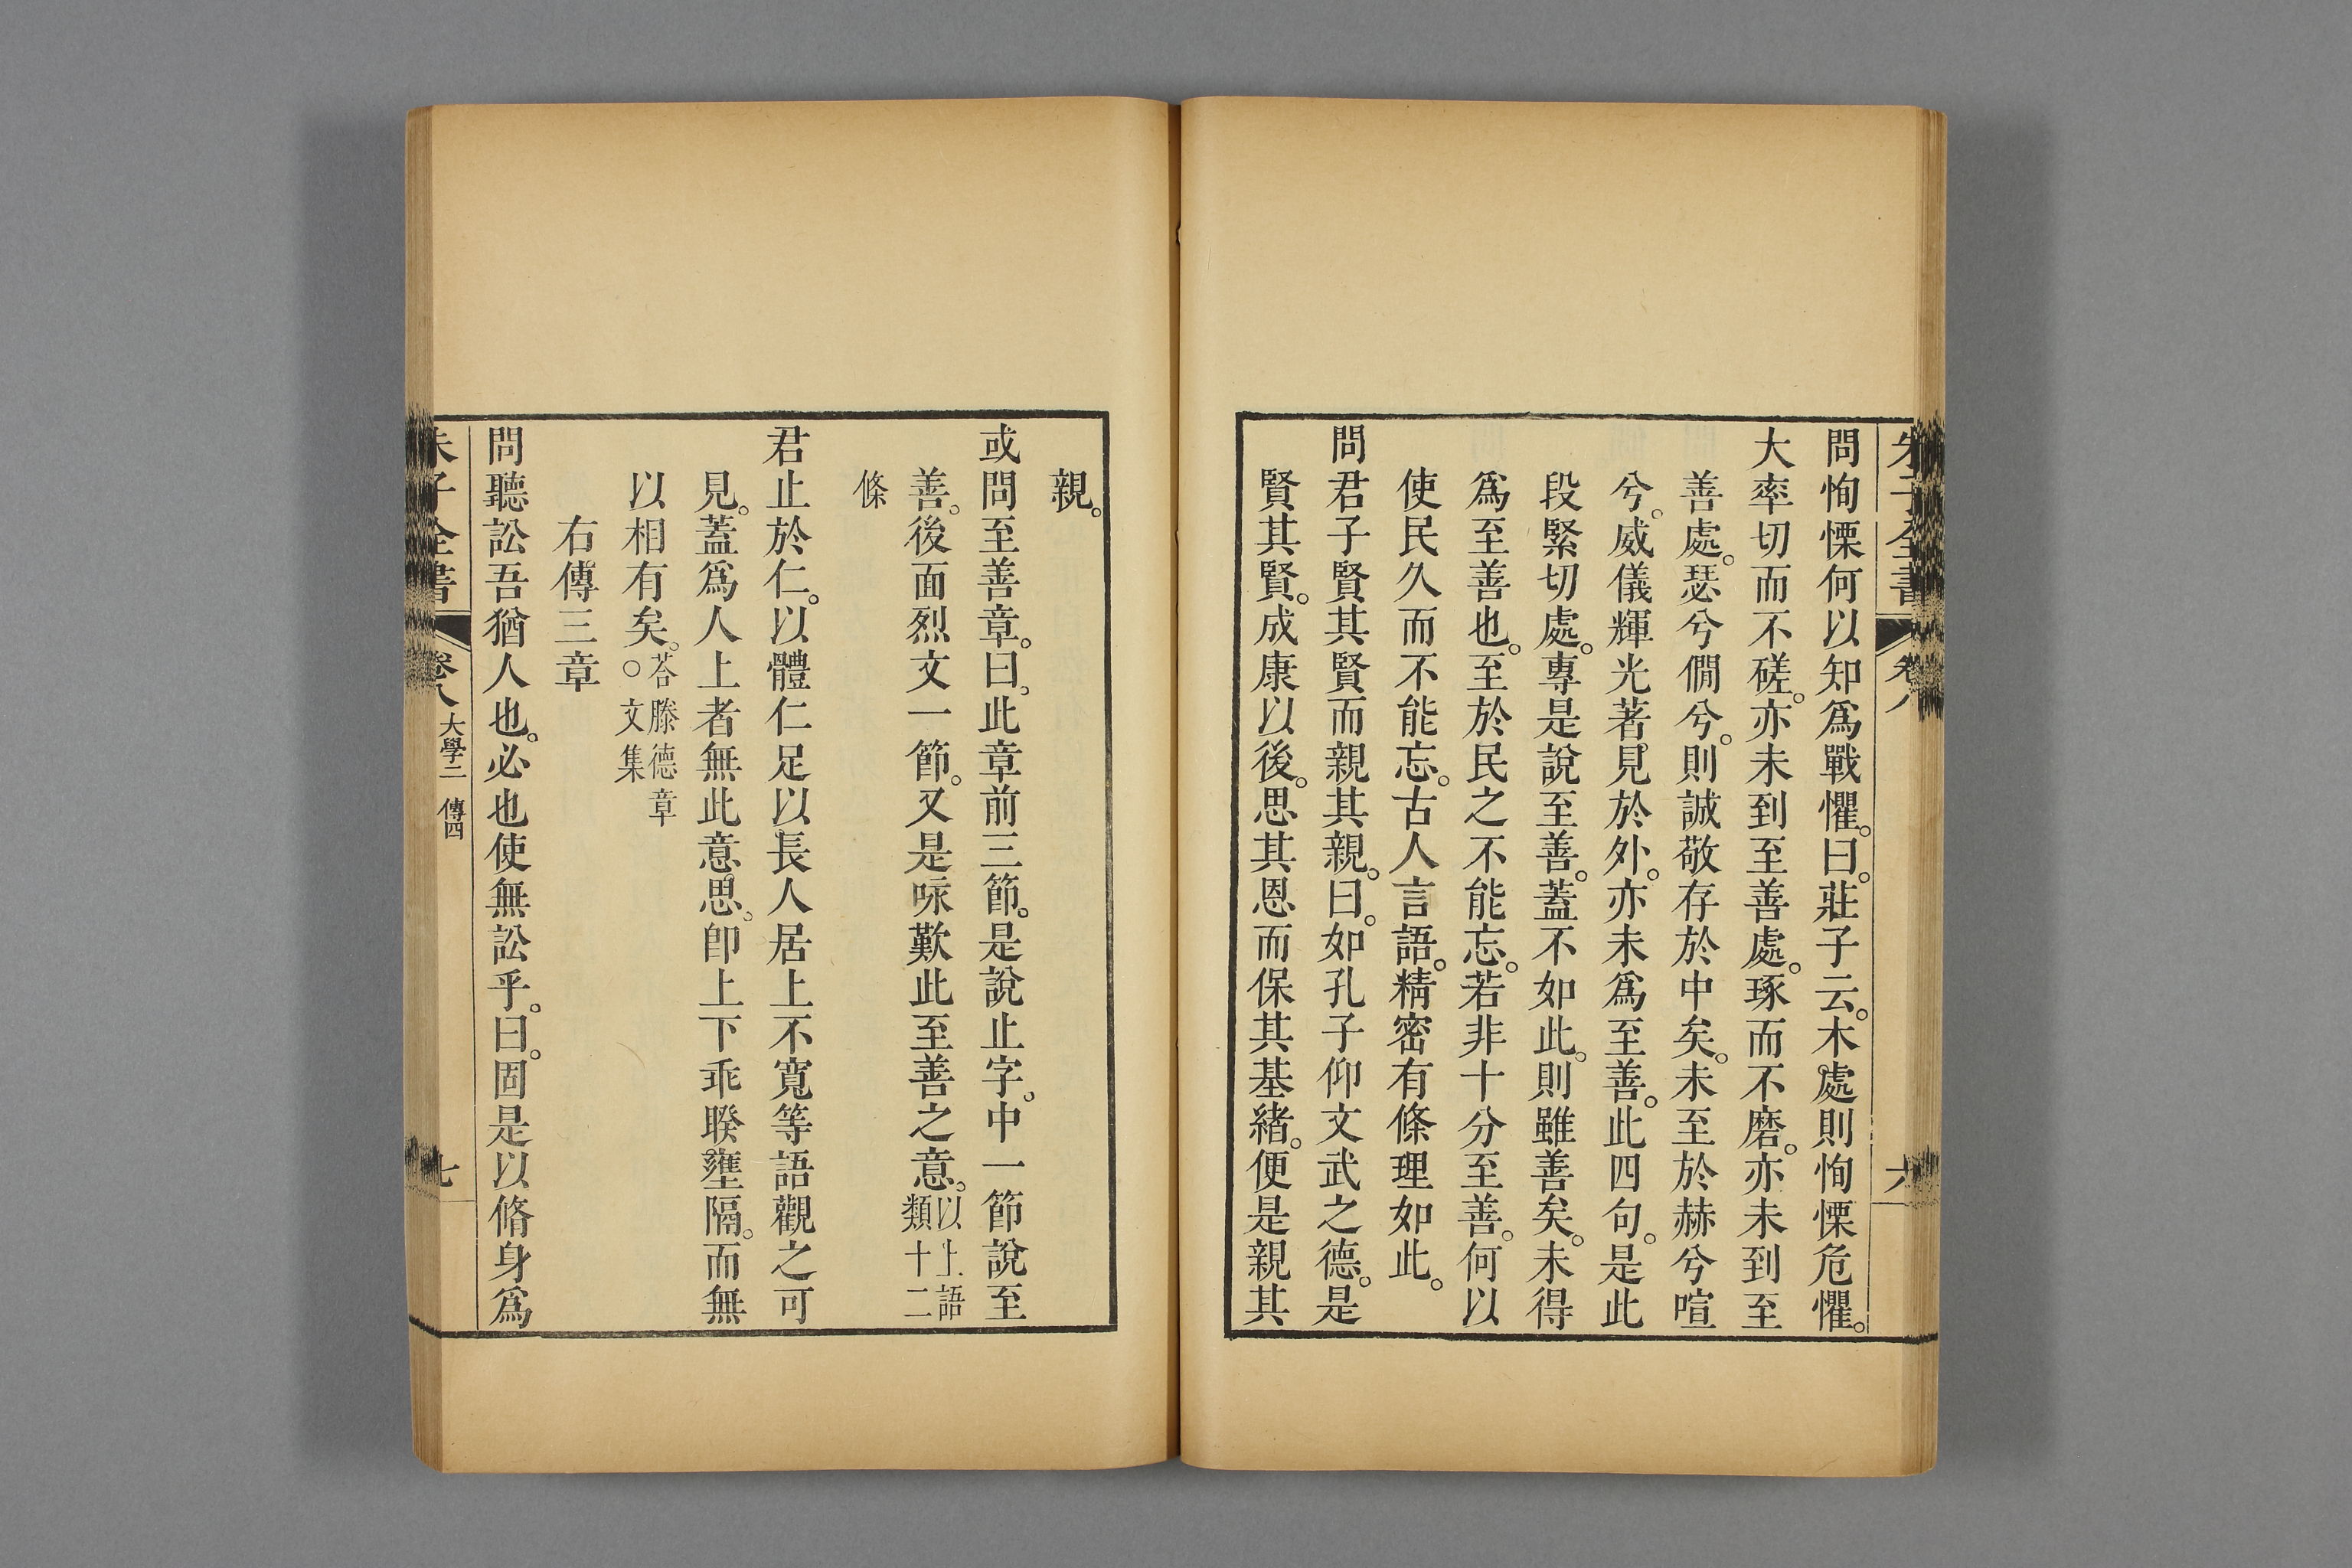 朱子全書 卷八 六
問恂慄何以知爲戰懼。曰。莊子云。木處則恂慄危懼。
大率切而不磋。亦未到至善處。琢而不磨。亦未到至
善處。瑟兮僩兮。則誠敬存於中矣。未至於赫兮喧
兮。威儀輝光著見於外。亦未爲至善。此四句。是此
段緊切處。專是說至善。蓋不如此。則雖善矣。未得
爲至善也。至於民之不能忘。若非十分至善。何以
使民久而不能忘。古人言語。精密有條理如此。
問君子賢其賢而親其親。曰。如孔子仰文武之德。是
賢其賢。成康以後。思其恩而保其基緒。便是親其
親。
或問至善章。曰。此章前三節。是說止字。中一節說至
善。後面烈文一節。又是咏歎此至善之意。以上語類十二
條
君止於仁。以體仁足以長人居上不寬等語觀之可
見。蓋爲人上者無此意思。卽上下乖睽壅隔。而無
以相有矣。答滕德章○文集
右傳三章
問聽訟吾猶人也。必也使無訟乎。曰。固是以脩身爲
朱子全書 卷八 大學二 傳四 七